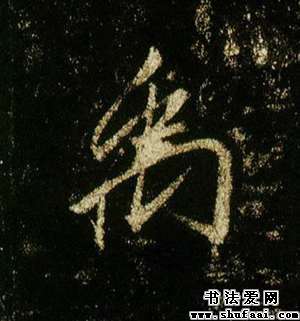 禹
书法爱网
www.shufaai.com